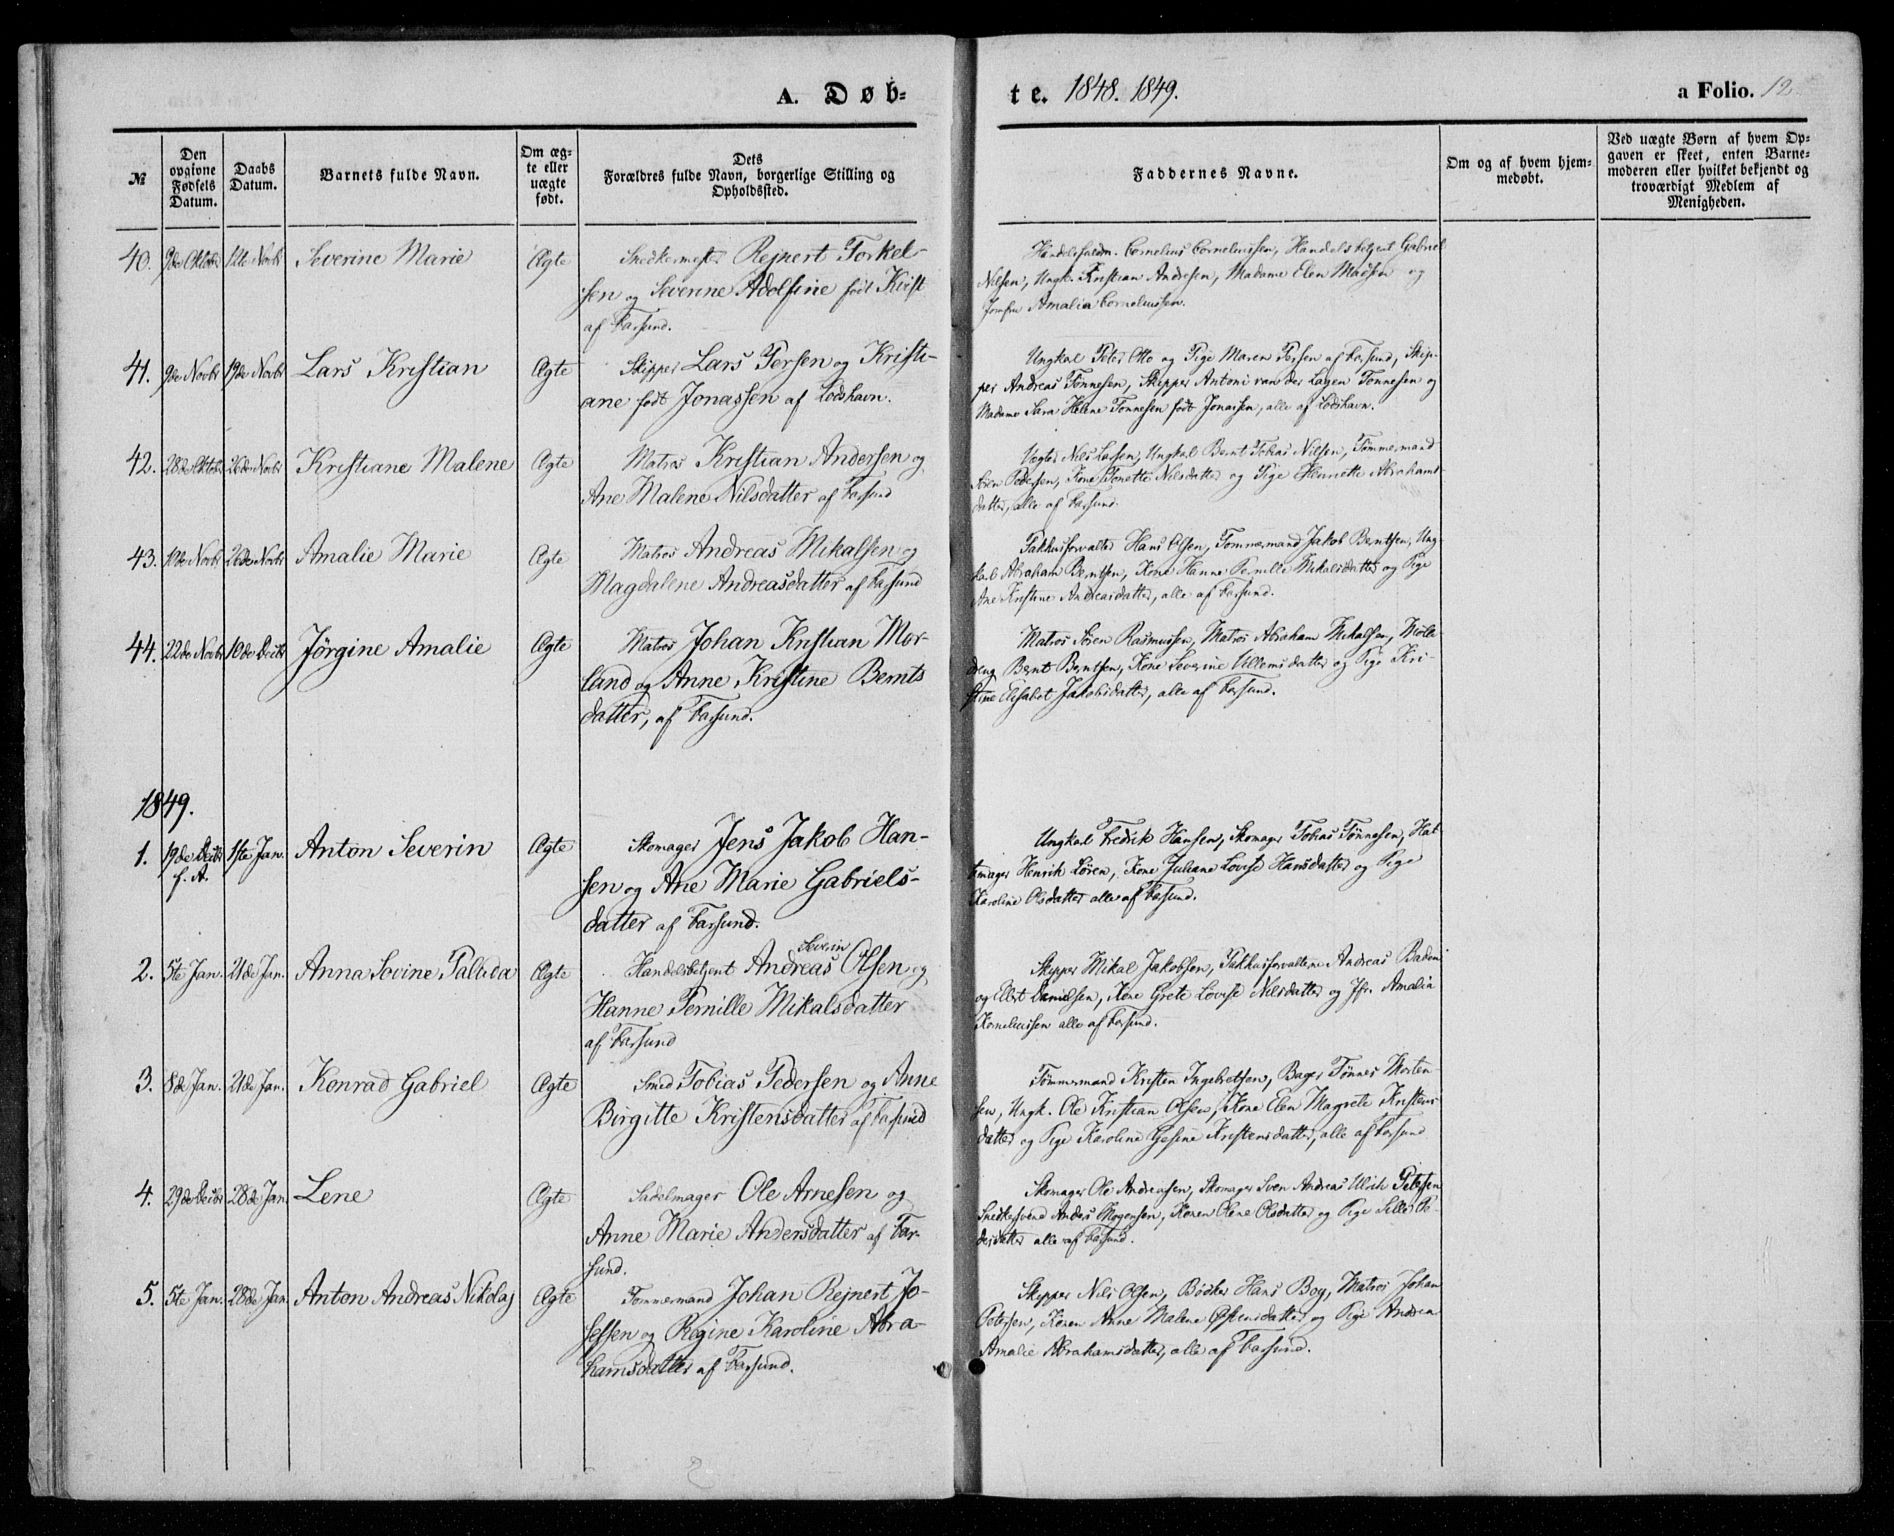 A. Døb-
te. 1848. 1849.
a Folio. 12
№
Den opgivne Fødsels Datum.
Daabs Datum.
Barnets fulde Navn.
Om ægte eller uægte født.
Dets Forældres fulde Navn, borgerlige Stilling og Opholdssted.
Faddernes Navne.
Om og af hvem hjemmedøbt.
Ved uægte Børn af hvem Opgaven er skeet, enten Barnemoderen eller hvilket bekjendt og troværdigt Medlem af Menigheden.
40. 9de Oktobr 12te Novbr Severine Marie Ægte Snedkermester Rejnert Torkel-
sen og Severine Adolfine født Kvist
af Farsund.
Handelsfuldm. Cornelius Corneliussen, Handelsbetjent Gabriel
Nilsen, Ungk. Kristian Andresen, Madame Elen Madsen og
Jomfru Amalia Corneliussen.
41. 9de Novbr 19de Novbr Lars Kristian Ægte Skipper Lars Tersen og Kristi-
ane født Jonassen af Lodshavn.
Ungkal Peter Otto og Pige Maren Tersen af Farsund, Skip-
per Andreas Tønnesen, Skipper Antoni van der Lagen Tønnesen og
Madame Sara Helene Tønnesen født Jonassen, alle af Lodshavn.
42. 28de Oktobr 26de Novbr Kristiane Malene Ægte Matros Kristian Andersen og
Ane Malene Nilsdatter af Farsund
Vegter Nils Larsen, Ungkal Bernt Tobias Nilsen, Tømmermand
Søren Pedersen, Kone Tonette Nilsdatter og Pige Henriette Abrahams
datter, alle af Farsund.
43. 10de Novbr 26de Novbr Amalie Marie Ægte Matros Andreas Mikalsen og
Magdalene Andreasdatter af Farsund
Pakhusforvalter Hans Olsen, Tømmermand Jakob Berntsen, Ung-
karl Abraham Berntsen, Kone Hanne Pernille Mikalsdatter og Pige
Ane Kristine Andreasdatter, alle af Farsund.
44. 22de Novbr 10de Decbr Jørgine Amalie Ægte Matros Johan Kristian Mor-
land og Anne Kristine Bernts
datter, af Farsund.
Matros Søren Rasmussen, Matros Abraham Mikalsen, Mølle
dreng Bernt Berntsen, Kone Severine Villumsdatter og Pige Kri-
stine Elisabet Jakobsdatter, alle af Farsund.
1849.
1. 19de Decbr f. A. 1ste Jan. Anton Severin Ægte Skomager Jens Jakob Han-
sen og Ane Marie Gabriels-
datter af Farsund.
Ungkal Fredrik Hansen, Skomager Tobias Tønnesen, Hat-
temager Henrik Løren, Kone Juliane Lovise Hansdatter og Pige
Karoline Olsdatter alle af Farsund.
2. 5te Jan. 21de Jan. Anna Sovine Palluda Ægte Handelsbetjent Andreas Severin Olsen og
Hanne Pernille Mikalsdatter
af Farsund
Skipper Mikal Jakobsen, Pakhusforvalterne Andreas Baden
og Ellert Danielsen, Kone Grete Lovise Nilsdatter og Jfr. Amalia
Korneliussen alle af Farsund.
3. 8de Jan. 21de Jan. Konrad Gabriel Ægte Smed Tobias Pedersen og Anne
Birgitte Kristensdatter af Farsund
Tømmermand Kristen Ingebretsen, Bager Tønnes Morten
sen, Ungk. Ole Kristian Olsen, Kone Elen Magrete Kristens
datter og Pige Karoline Gesine Kristensdatter, alle af Farsund
4. 29de Decbr 28de Jan. Lene Ægte Sadelmager Ole Arnesen og
Anne Marie Andersdatter af Far-
sund.
Skomager Ole Andreasen, Skomager Sven Andreas Ulrik Petersen
Snedkersvend Anders Mogensen, Konen Olene Olsdatter og Pige Sille Pe-
dersdatter alle af Farsund.
5. 5te Jan. 28de Jan. Anton Andreas Nikolaj Ægte Tømmermand Johan Rejnert Jo-
sefsen og Regine Karoline Abra-
hamsdatter af Farsund.
Skipper Nils Olsen, Bødker Hans Bog, Matros Johan
Petersen, Konen Anne Malene Østensdatter og Pige Andrea
Amalie Abrahamsdatter, alle af Farsund.